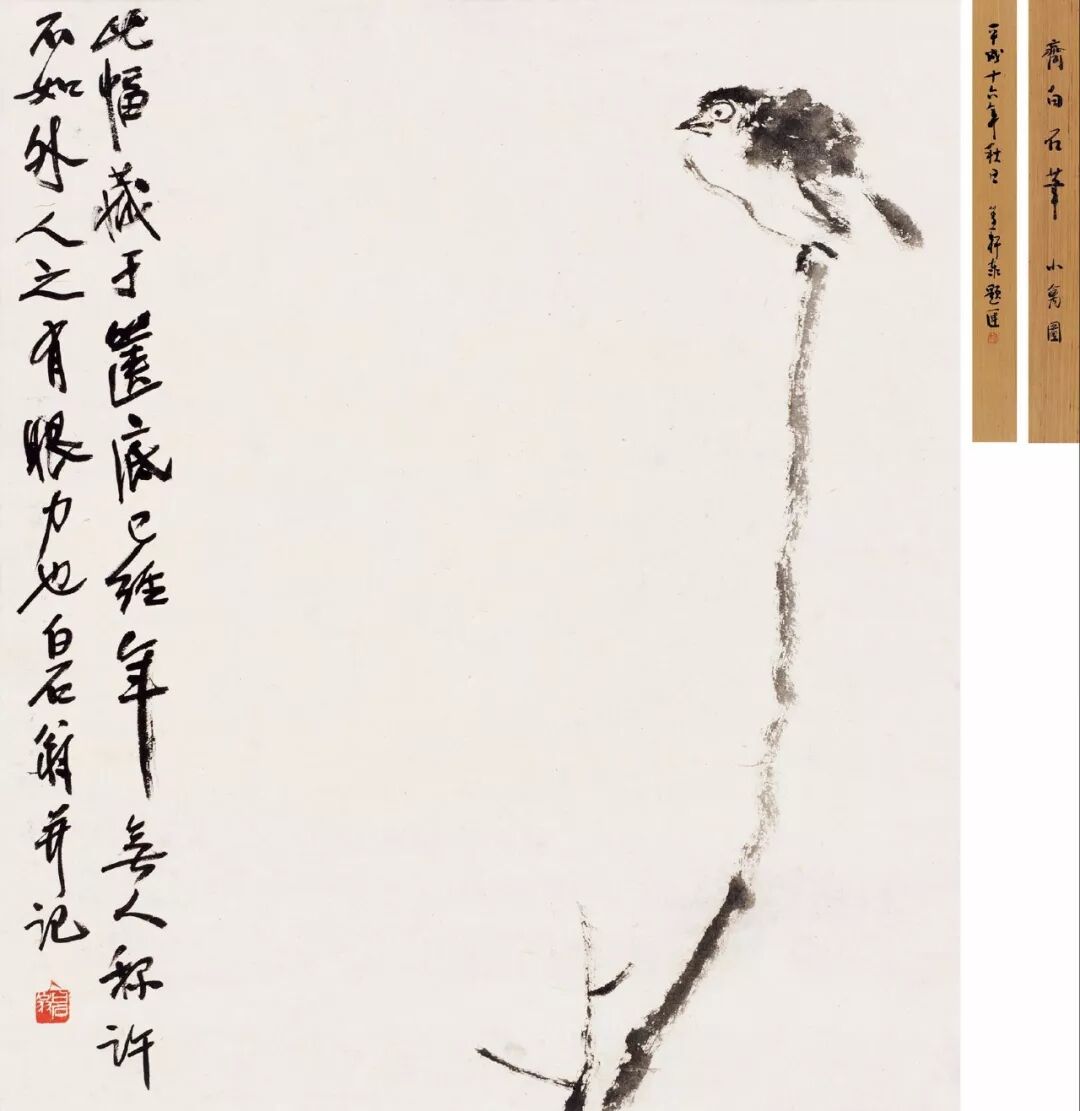 此幅藏于箧底已经年無人称许
不如外人之有眼力也白石翁并记
齊白石筆 小禽圖
平成十六年秋日 題